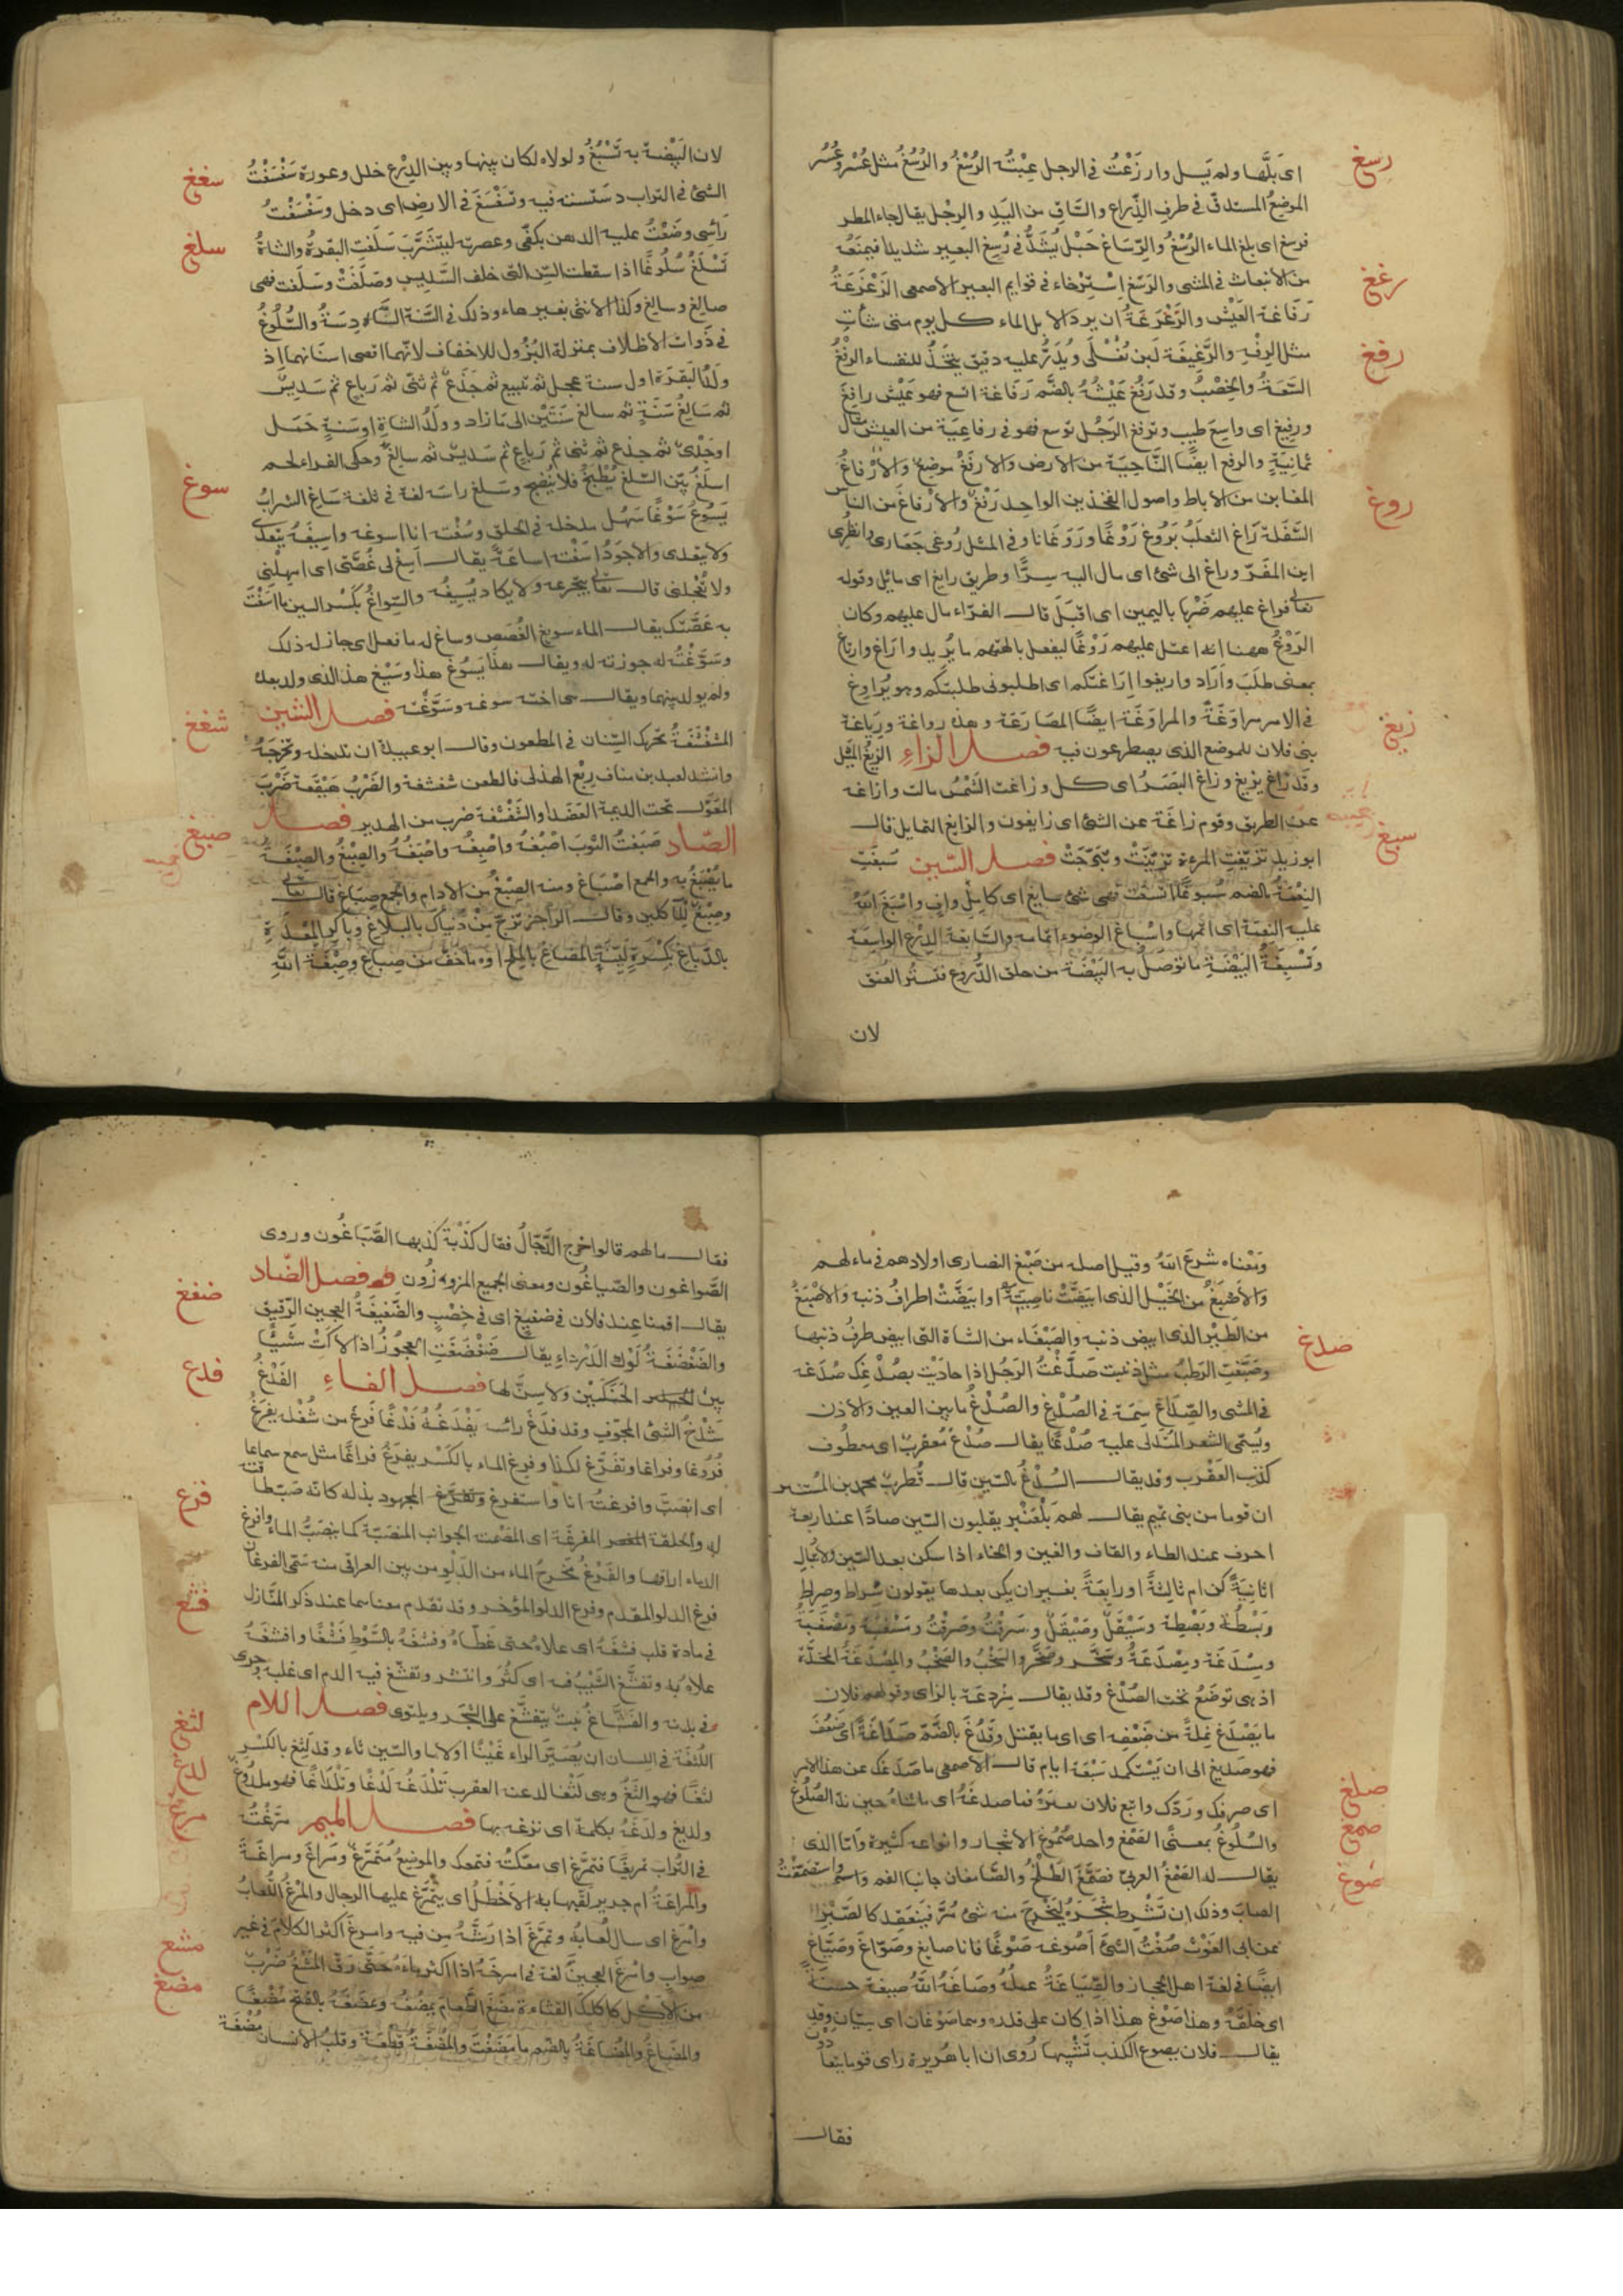 اى بَلَّها ولم يَسِل وارزَغْتُ فى الرجل عِبْتُه الرُسْغُ والرُسُغُ مثل عُسْر وعُسُر
رسغ
الموضعُ المستدقّ فى طرف الذِّراع والسَّاقِ من اليَدِ والرِجْل يقال جاء المطر
فرسغ اى بلغ الماء الرُسْغَ والرِّسَاغ حَبْل يُشَدُّ فى رُسغ البعير شديدا فيمنعُه
من الانبعاث فى المشى والرَسَغ اِسْتِرْخاء فى قوايم البعير الاصمعى الرَغْرَغَةُ
رغغ
رَفاغة العَيْش والرَغْرَغَةُ ان يرد الابل الماء كل يوم متى شات
مثل الرِفْهِ والرَّغِيغَة لَبن يُغْلَى ويُذَرُّ عليه دقيق يتخذ للنفساء الرفْغُ
رفغ
السَّعَةُ والخِصْبُ وقد رَفُغ عَيْشُهُ بالضَّم رَفَاغة اتسع فهو عَيْش رافِغ
ورفيغ اى واسع طيب وترفغ الرَجُل توسع فهو فى رفاغِيَة من العيش مثال
ثمانِيَةٍ والرفغ ايضًا النَّاحِيَة من الارض والارفَغ موضع والأرْفاغُ
المغابن من الاباط واصول الفخذين الواحد رَفْغ والارْفاغ من الناس
السَّفِلة رَاغ الثعلَبُ يَرُوغ رَوْغًا ورَوَغانا وفى المثل رُوغى جَعَارِى وانظرى
روغ
اين المفَرّ وراغ الى شئ اى مال اليه سِرًّا وطريق رايغ اى مائل وقوله
تعالى فراغ عليهم ضَرْبا باليمين اى اقبَل قال الفرّاء مال عليهم وكان
الرَوْغُ ههنا انه اعتل عليهم رَوْغًا ليفعل بالهتهم ما يُرِيد وارَاغ وارتاغ
بمعنى طلَبَ واَرَاد واريغوا اِرَاغتكم اى اطلبونى طلبتكم وهو يُرَاوِغ
فى الامر مراوَغَةً والمراوَغَة ايضًا المصَارَعَة وهذه رِواغة ورِيَاغة
بنى فلان للموضع الذى يصطرعون فيه فصل الزاء الزيغ الميَل
زيغ
وقد زاغ يزيغ وزاغ البَصَرُ اى كل وزاغت الشَمْسُ مالت وازاغه
عن الطريق وقوم زاغَة عن الشئ اى زايغون والزايغ التمايل قال
ابوزيد تزيّغتِ المرءة تزيّنَتْ وتبرّجَتْ فصل السّين سَبغَتِ
سبغ
النِعْمَةُ بالضم سُبوغًا اتسعَت فهى شئ سابغ اى كامِل وافٍ واسْبَغ اللهُ
عليه النعمة اى اتمّها واسْباغ الوضوء اتمامه والسَّابغة الدِرْع الواسِعَة
وتَسْبِغَةُ البَيْضَةِ ما توصَلُ به البَيْضَة من حلق الدُّروع فتستُر العنق
لان
لان البَيْضة به تَسْبُغُ ولولاه لكان بينها وبين الدِرْع خلل وعورة سَغْسَغْتُ
سغغ
الشئ فى التراب دسَسْته فيه وتسَغْسَغ فى الارض اى دخل وسَغْسَغْتُ
رَأسِى وضَعْتُ عليه الدهن بكفّى وعصرته ليتَشَرَّبَ سَلَغت البقرةُ والشاةُ
سلغ
تَسْلَغُ سُلُوغًا اذا سقطت السِنّ التى خلف السَّدِيسِ وصَلَغَتْ وسَلَغت فهى
صالغ وسالغ وكذا الانثى بغير هاء وذلك فى السَّنة السَّادِسَةُ والسُّلُوغُ
فى ذَوات الاظلاف بمنزلة البُزُول للاخفاف لانّهما اقصى اسنانهما اذ
ولدُ البقرَة اول سنة عجل ثم تبيع ثم جَذَع ثم ثنى ثم رَباع ثم سَدِيسٌ
ثم سَالِغُ سَنَةٍ ثم سالغ سَنَتَيْن الى مَا زاد وولَدُ الشاةِ اوَسَنةٍ حَمَل
اوجَدْى ثم جذع ثم ثنى ثم رَباع ثم سَديسٌ ثم سالغ وحكى الفراء لحم
اسلَغُ بيّن السَّلَغ يُطْبَخُ فلا يَنْضَج وسَلغ راسَه لغة فى ثلغه سَاغ الشراب
سوغ
يَسُوغُ سَوْغًا سَهُل مدخله فى الحلق وسُغْته انا اسوغه واسِيغُه يتعدى
ولا يتعدى والاجوَدُ اسَغْته اساغةً يقال اَسِغْ لى غُصَّتى اى امهلْنى
ولا تُعْجلنى قال تعالى يتجرعه ولا يكاد يُسِيغُه والسِّواغُ بكَسْر السين ما اسَغْتَ
به غصَّتك يقال الماء سِوَاغ الغُصَص وساغ له ما فعل اى جاز له ذلك
وسَوَّغْتُه له جوزته له ويقال هذا يَسُوغ هذا وسَيْغ هذا الذى ولد بعده
ولم يولد بينهما ويقال هى اخته سوغه وسَوْغَته فصل الشين
الشغْشَغَةُ تحْرِيك السِّنان فى المطعون وقال ابوعبيدة ان تدخله وتخرِجَهُ
شغغ
وانشد لعبد بن مناف رِبْع الهذلى فالطعن شغشغة والضَرْبُ هَيْقَعة ضَرْبَ
المعَوِّل تحت الديمة العَضَدا والشَغْشغة ضرب من الهدير فصل
الصّاد صَبَغْتُ الثوبَ اصْبُغُه واصْبِغُه واصْبَغُهُ والصِبْغُ والصِبْغَة
صبغ
ما يُصْبَغُ به والجمع اصْبَاغ ومنه الصِبْغُ من الادام والجمع صِباغ قال تعالى
وصِبْغٍ لِلآكلين وقال الراجز تزجّ مِنْ دُنياك بالبلاغ وباكر المِعْدَةِ
بالدِّباغ بكِسْرَةٍ ليّنَةِ المضاغ بالمِلح او ما خف من صِباغ وصِبْغَة اللهِ
ومَعْناه شرع اللهُ وقيل اصله من صَبْغ النصارى اولادهم فى ماء لهم
والاَصْبَغُ من الخَيْل الذى ابيضَّتْ ناصِيَتُهُ اوابيَضَّتْ اطرافُ ذنبه والاصْبَغُ
من الطَيْر الذى ابيض ذنبه والصَبْغَاء من الشاة التى ابيض طرفُ ذنبها
وصَبَّغتِ الرطبُ مثل ذنبت صَدَغْتُ الرَجُل اذا حاذيْت بصُدْغِك صُدْغه
صدغ
فى المشى والصِّدَاغ سِمَة فى الصُدْغ والصُدْغُ ما بين العين والاذن
ويُسمّى الشعر المُتدَلى عليه صُدْغًا يقال صُدْغ مُعقربٌ اى معطوف
كذنب العَقْرب وقد يقال السُدْغُ بالسّين قال قُطربٌ محمد بن المُستنير
ان قوما من بنى تميم يقال لهم بَلْعَنْبر يقلبون السّين صادًا عند اربعة
احرف عند الطاء والقاف والغين والخاء اذا سكن بعد السّين ولا تُبالِ
اثانيةً كن ام ثالِثةً او رابِعةً بغير ان يكن بعدها يقولون سِراط وصراط
وبَسْطَة وبَصْطة وسَيْقَل وصَيْقَل وسَرقْتُ وصَرقْتُ ومَسْغَبة ومَصْغَبةً
ومِسْدَغة ومِصْدَغةٌ وسَخّر وصَخّر والسَخَبُ والصَخَبُ والمِصْدَغَةُ المخَدَّة
اذ هى توضَعُ تحت الصُدْغ وقد يقال مِزْدغة بالزاى وقولهم فلان
ما يَصْدَغ نملةً من ضَعْفِه اى ما يقتل وصَدُغَ بالضَّم صَدَاغَةً اى ضعُفَ
فهو صَدِيغ الى ان يَسْتكمل سَبْعَة ايام قال الاصمعى ما صَدَغك عن هذا الامر
اى صرفك ورَدَّك واتبع فلان بعيرَهُ فما صدغَهُ اى ما ثناهُ حين ندّ الصُلُوغُ
صلغ
والسُلُوغُ بمعنًى الصَمْغ واحد صُمُوغ الاشجار وانواعه كثيرة وامّا الذى
صمغ
يقال له الصَمْغ العربى فصَمْغُ الطَلْح والصَّامغان جانبا الفم واستصْمَغْتُ
الصابَ وذلك ان تَشْرِط شَجَرَهُ لِيَخْرجَ منه شئ مُرّ فينعَقِد كالصَبْرِ
صوغ
عن ابى الغَوْث صُغْتُ الشئَ اصُوغه صَوْغًا فانا صايغ وصَوّاغ وصَيّاغ
ايضًا فى لغة اهل الحجاز والصِّيَاغَةُ عملُهُ وصَاغَهُ اللهُ صِيغة حسنةً
اى خلَقَهُ وهذا صَوْغ هذا اذا كان على قدره وهما صَوْغان اى سِيّان وقد
يقال فلان يصوغ الكذب تَشْبِيها رُوى ان ابا هُرَيرة راى قوما يتعادَوْن
فقال
فقال ما لهم قالوا خرج الدَّجّالُ فقال كَذْبَة كذبها الصَّبَّاغُون وروى
الصَّواغون والصّياغُون ومعنى الجميع المزوّرُون فصل الضّاد
يقال اقمنا عند فلان فى ضَغِيغ اى فى خِصْبٍ والضَّغِيغَةُ العجين الرَّقيق
ضغغ
والضَغْضَغَةُ لَوْك الدَرْداءِ يقال ضَغْضَغتِ العجُوزُ اذا لاكَتْ شَيئًا
بين الحَنَكَيْن ولا سِنَّ لها فصل الفاءِ الفَدْغُ
فدغ
شَدْخُ الشئِ المجوّفِ وقد فدَغ راسَه يَفْدَغُهُ فَدْغًا فَرَغَ من شُغْله يفرُغُ
فُرُوغا وفراغا وتفَرَّغ لكذا وفرِغ الماء بالكَسْر يفرَغُ فراغًا مثل سمع سماعا
فرغ
اى انصَبّ وافرغتُه انا واستفرغ المجهود بذله كانّه صَبّ طاقته
له والحلقة المفرغَة اى المصمتة الجوانب المنصبّة كما ينصَبُّ الماء وافرغ
الدماء اراقها والفَرْغُ مَخْرَجُ الماء من الدَلْوِ من بين العراقى منه سُمّى الفرغان
فرغ الدلو المقدم وفرغ الدلو المؤخر وقد تقدم معناهما عند ذكر المنَازل
فشغ
فى مادة قلب فشَغهُ اى علاهُ حتى غَطّاهُ وفشغَهُ بالسَّوْطِ فَشْغًا وافشغَهُ
علاهُ به وتفشَّغ الشَّيْبُ فيه اى كثُرَ وانتشر وتفشّغ فيه الدم اى غلبه وجرى
فى بدنه والفَشَّاغُ نَبتٌ يتفشَّغ على الشجَر ويلتوى فصل اللام
اللُثْغَة فى اللسان ان يُصَيّر الراء غَيْنًا اولاما والسّين ثاء وقد لثِغ بالكَسْر
لثغ
لثغًا فهو الثَغُ وهى لَثْغا لدغته العقرب تَلْدَغُه لَدْغًا وتَلْدَاغًا فهو ملدوغ
ولديغ ولدَغَهُ بكلمة اى نزغه بها فصل الميم مَرَّغْتُهُ
فى التُراب تمرِيغًا فتمرَّغ اى معّكتُه فتمعك والموضِعُ مُتَمَرَّغ ومَراغ ومراغَةً
والمراغَةُ ام جرير لقّبها به الاخْطلُ اى يتمَرَّغ عليها الرجال والمرْغُ اللُّعابُ
وامْرَغ اى سال لُعابُهُ وتمَرَّغَ اذا رَشَّهُ مِن فيه وامرغ اكثر الكلام فى غير
صواب وامْرغ العجين لغة فى امرخَهُ اذا اكثر ماءَهُ حتى رقّ المشْغُ ضَرْبٌ
مشغ
من الاكْل كاكلك القثاءة مَضَغ الطَّعام يمضُغُه ويمضَغُهُ بالفتح مَضْغًا
مضغ
والمَضَاغُ والمُضَاغَةُ بالضّم ما مَضَغْتَ والمُضْغَةُ قِطْعَة وقلبُ الانسان مُضْغَة